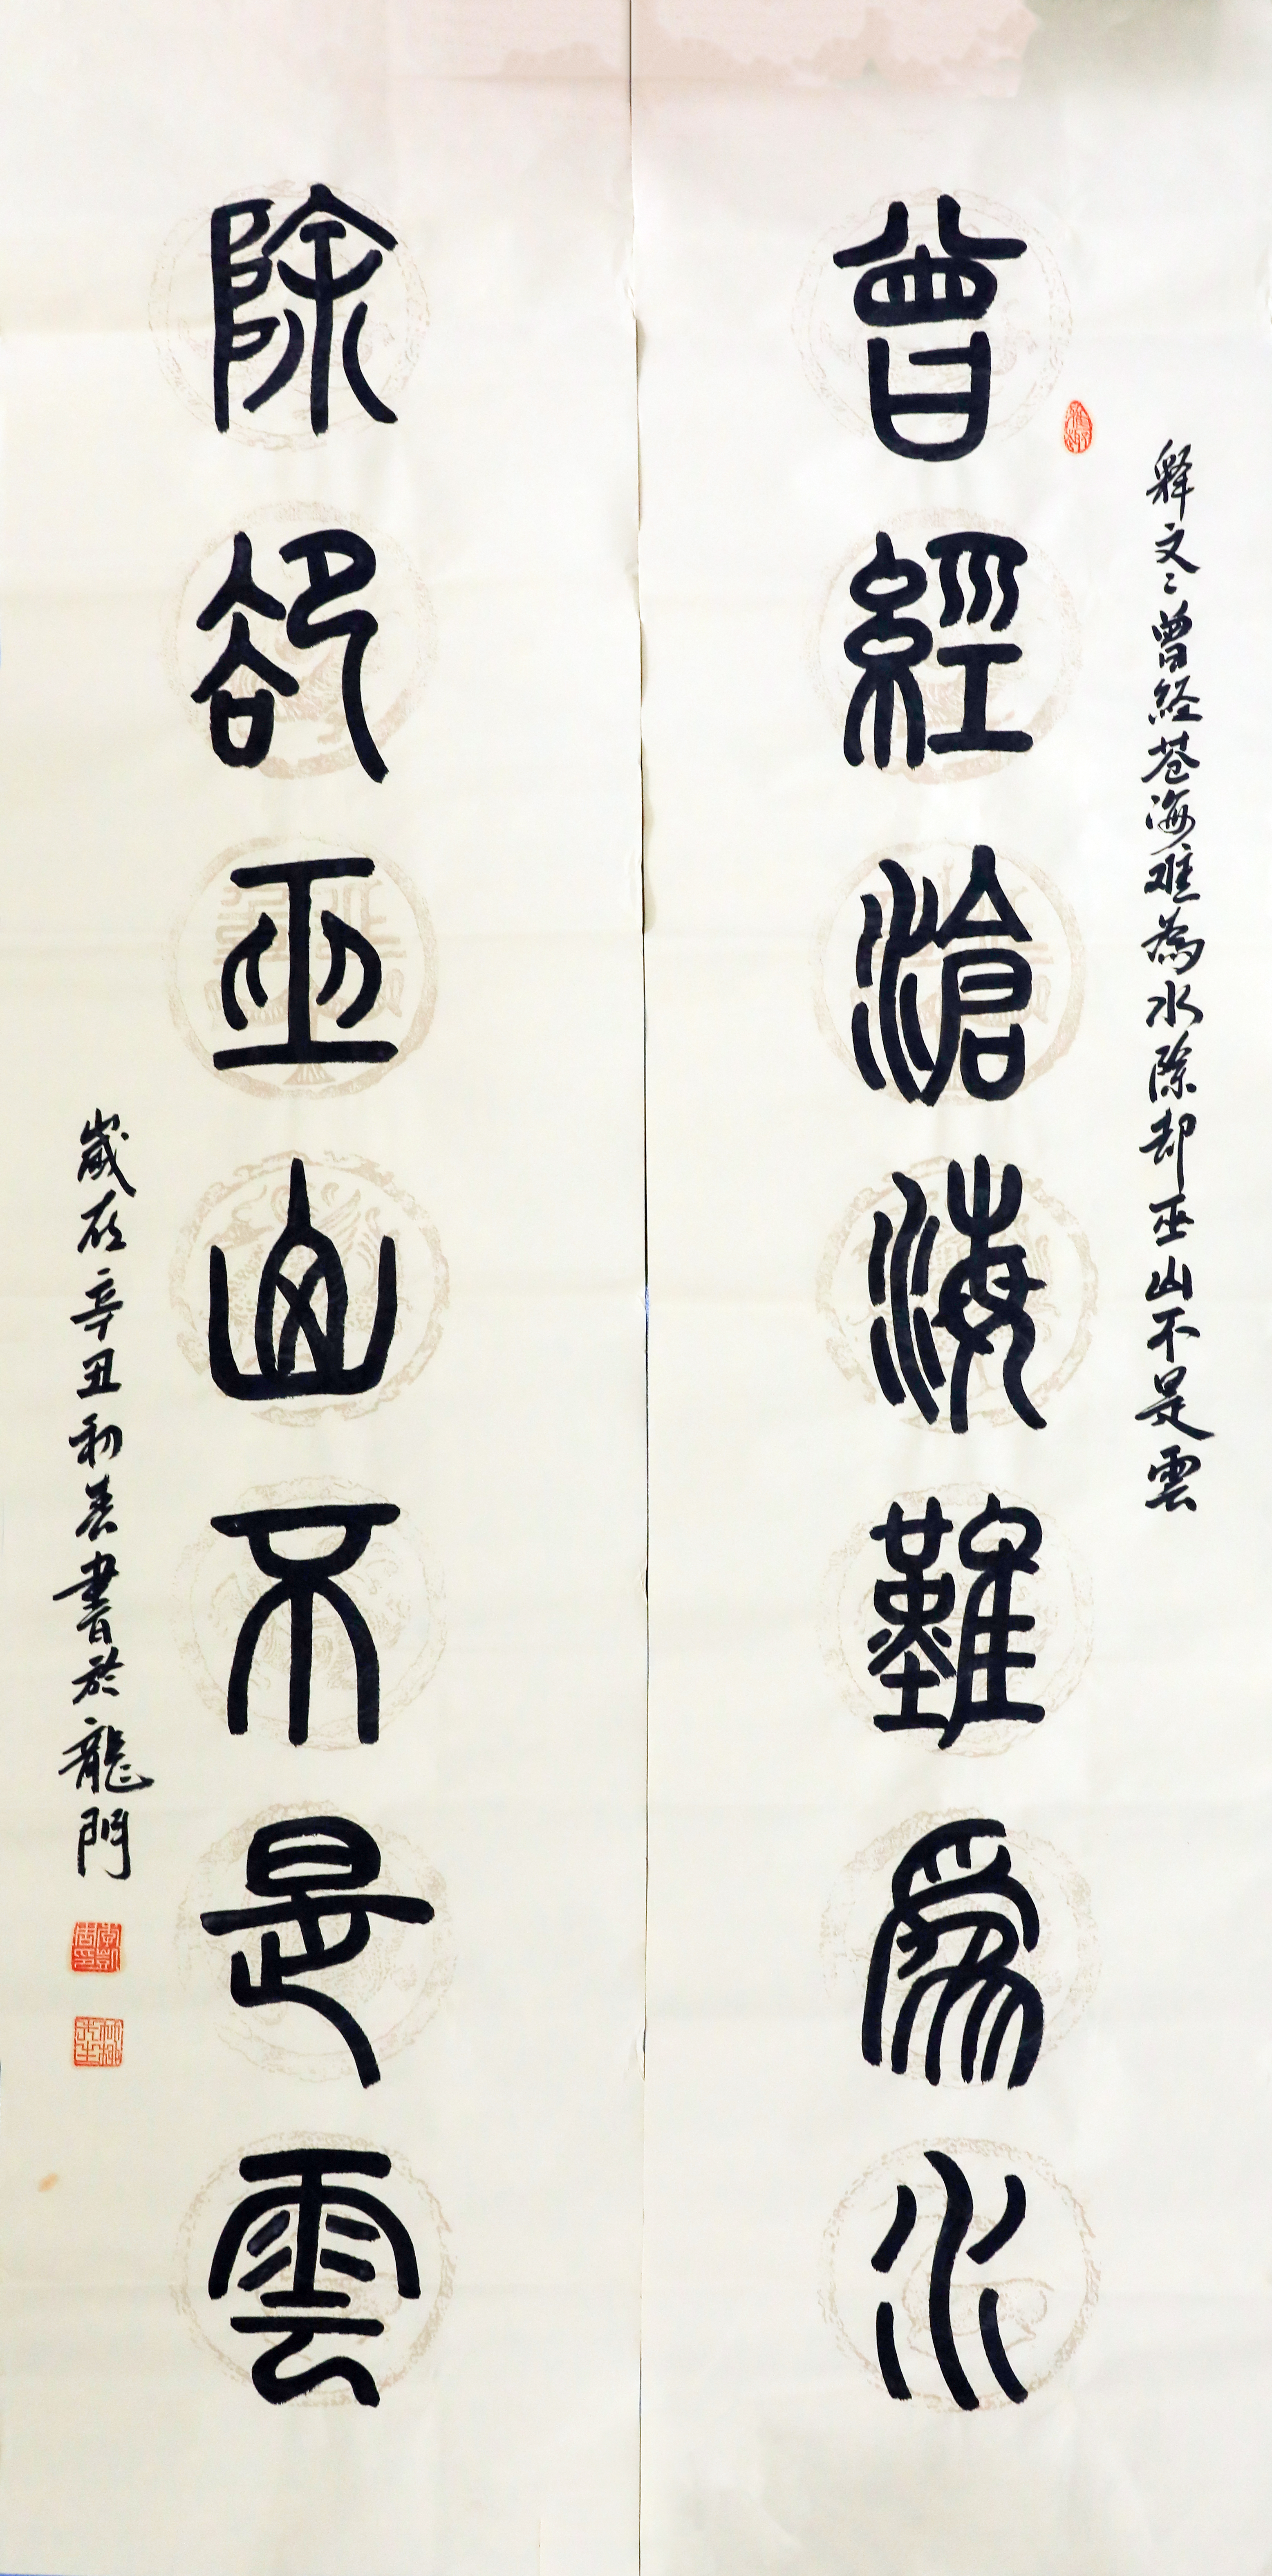 释文:曾经苍海难為水除却巫山不是雲
曾經滄海難爲水
除卻巫山不是雲
歲在辛丑初春書於龍門